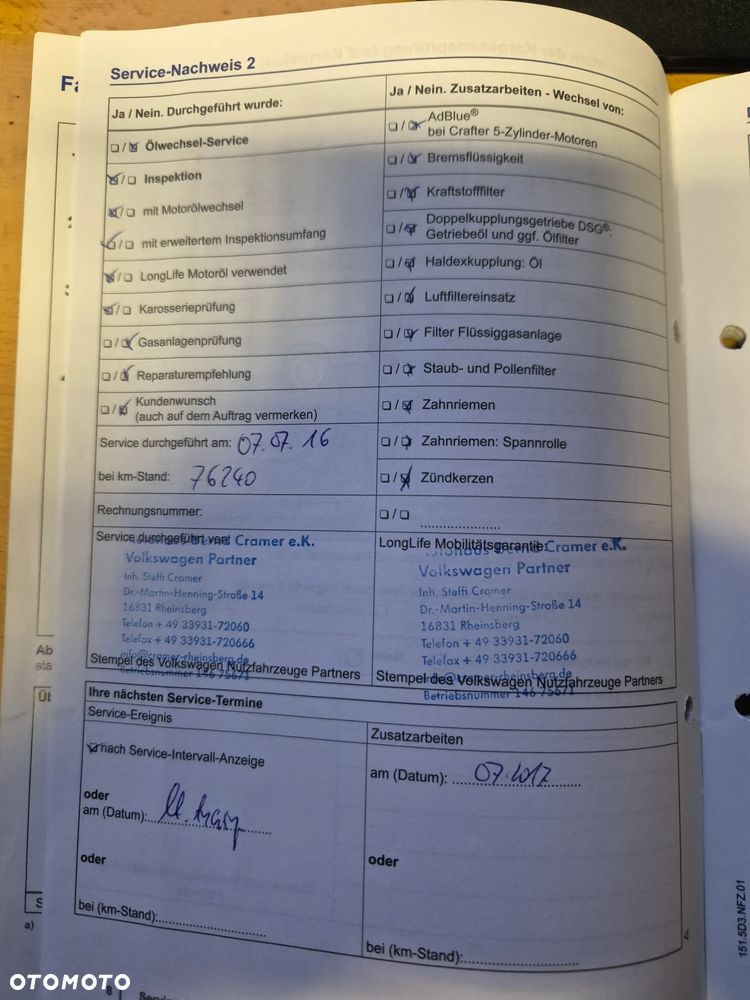 Service-Nachweis 2
Ja / Nein. Durchgeführt wurde:
Ölwechsel-Service
Inspektion
mit Motorölwechsel
mit erweitertem Inspektionsumfang
LongLife Motoröl verwendet
Karosserieprüfung
Gasanlagenprüfung
Reparaturempfehlung
Kundenwunsch
(auch auf dem Auftrag vermerken)
Service durchgeführt am: 07.07.16
bei km-Stand: 76240
Rechnungsnummer:
Ja / Nein. Zusatzarbeiten - Wechsel von:
AdBlue®
bei Crafter 5-Zylinder-Motoren
Bremsflüssigkeit
Kraftstofffilter
Doppelkupplungsgetriebe DSG®:
Getriebeöl und ggf. Ölfilter
Haldexkupplung: Öl
Luftfiltereinsatz
Filter Flüssiggasanlage
Staub- und Pollenfilter
Zahnriemen
Zahnriemen: Spannrolle
Zündkerzen
Service durchgeführt von:
Cramer e.K.
Volkswagen Partner
Inh. Steffi Cramer
Dr.-Martin-Henning-Straße 14
16831 Rheinsberg
Telefon + 49 33931-72060
Telefax + 49 33931-720666
info@cramer-rheinsberg.de
Betriebsnummer 146 75671
Stempel des Volkswagen Nutzfahrzeuge Partners
LongLife Mobilitätsgarantie:
Autohaus Bernd Cramer e.K.
Volkswagen Partner
Inh. Steffi Cramer
Dr.-Martin-Henning-Straße 14
16831 Rheinsberg
Telefon + 49 33931-72060
Telefax + 49 33931-720666
info@cramer-rheinsberg.de
Betriebsnummer 146 75671
Stempel des Volkswagen Nutzfahrzeuge Partners
Ihre nächsten Service-Termine
Service-Ereignis
nach Service-Intervall-Anzeige
oder
am (Datum):
oder
bei (km-Stand):
Zusatzarbeiten
am (Datum): 07.2017
oder
bei (km-Stand):
151.5D3.NFZ.01
a)
8
OTOMOTO